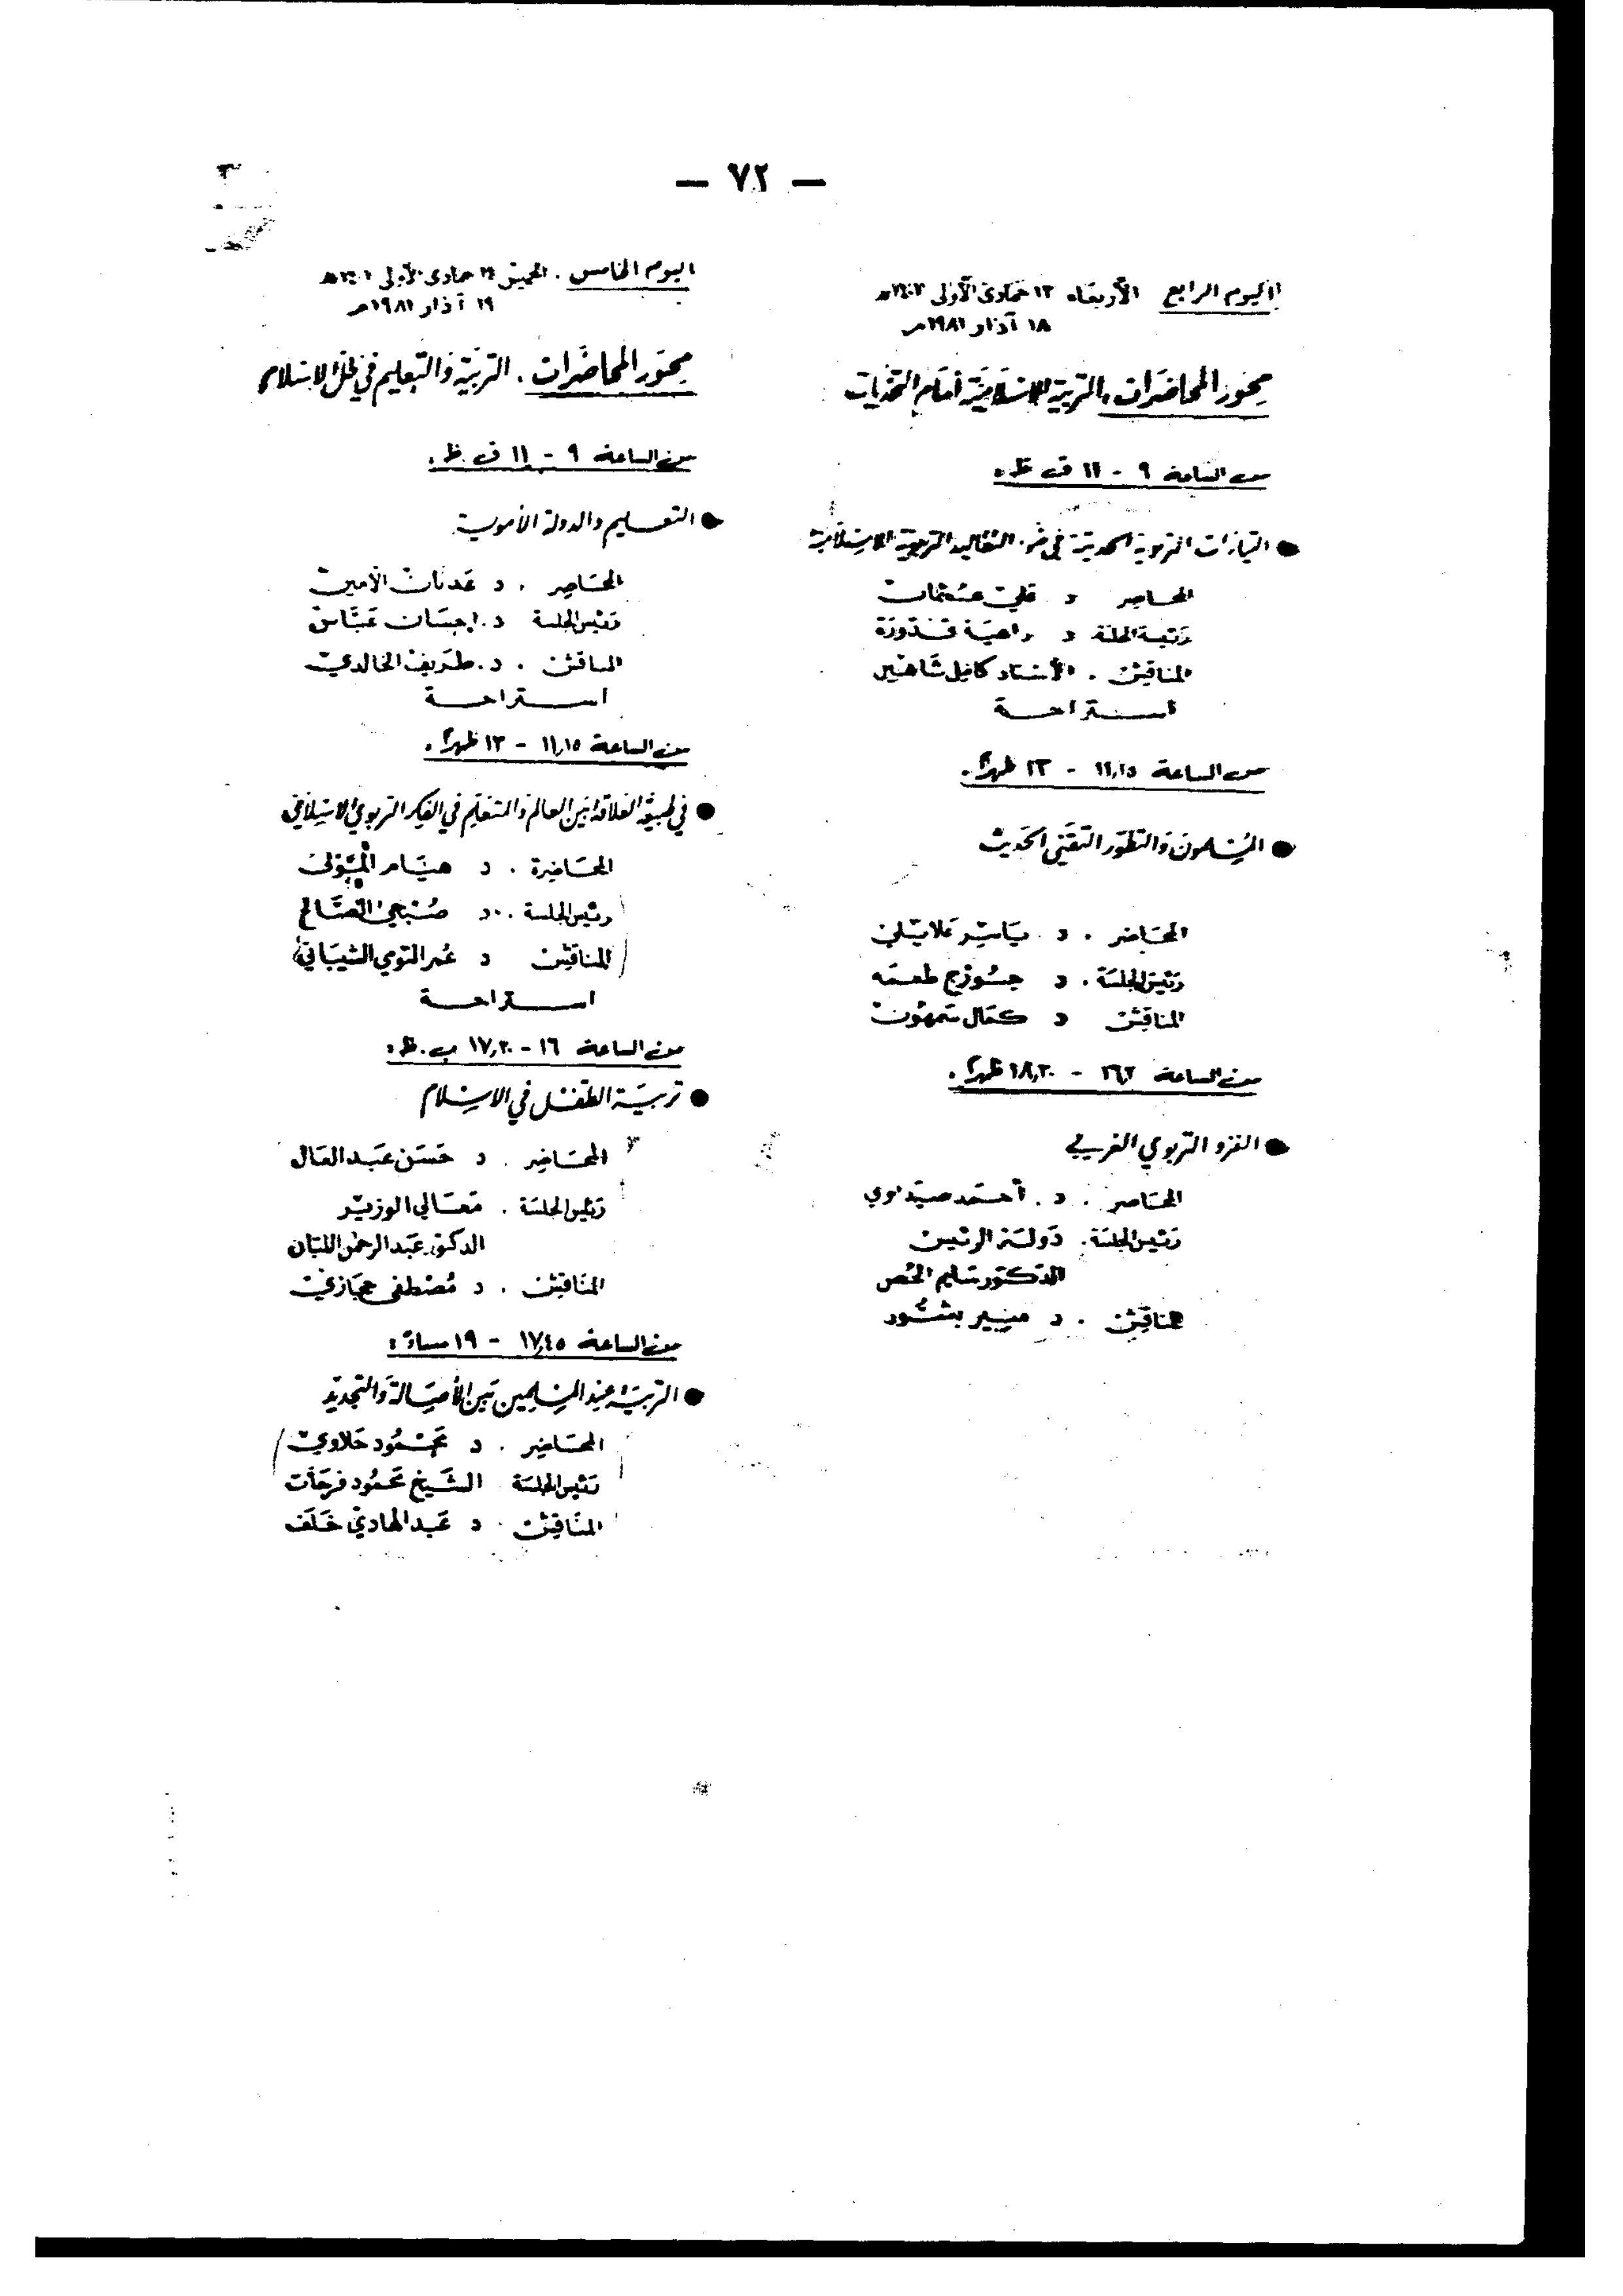 — ٧٢ —
اليوم الرابع الأربعاء ١٢ جمادى الأولى
١٨ آذار ١٩٨١م
محور المحاضرات . التربية الإسلامية أمام التحديات
من الساعة ٩ - ١١ ق. ظ.
● التيارات التربوية الحديثة في ضوء التقاليد التربوية الإسلامية
المحاضر د علي عثمان
رئيسة الجلسة د راهية قدورة
المناقش . الأستاذ كامل شاهين
استراحة
من الساعة ١١,١٥ - ١٣ ظهراً .
● المسلمون والتطور التقني الحديث
المحاضر . د . ياسر ملاتيلي
رئيس الجلسة . د جورج طعمه
المناقش د كمال
من الساعة - ١٨,٣٠ ظهراً .
● الغزو التربوي الغربي
المحاضر . د . أحمد صيداوي
رئيس الجلسة . دولة الرئيس
الدكتور سليم الحص
المناقش . د منير بشور
اليوم الخامس . الخميس جمادى الأولى
١٩ آذار ١٩٨١م
محور المحاضرات . التربية والتعليم في ظل الإسلام
من الساعة ٩ - ١١ ق. ظ.
● التعليم والدولة الأموية
المحاضر . د عدنان الأمين
رئيس الجلسة د. إحسان عباس
المناقش . د. طريف الخالدي
استراحة
من الساعة ١١,١٥ - ١٣ ظهراً .
● في طبيعة العلاقة بين العالم والمتعلم في الفكر التربوي الإسلامي
المحاضرة . د هيام المولى
رئيس الجلسة . د صبحي الصالح
المناقش د عمر التومي الشيباني
استراحة
من الساعة ١٦ - ١٧,٣٠ ب. ظ:
● تربية الطفل في الإسلام
المحاضر . د حسن عبد العال
رئيس الجلسة . معالي الوزير
الدكتور عبد الرحمن اللبان
المناقش . د مصطفى حجازي
من الساعة ١٧,٤٥ - ١٩ مساءً :
● التربية عند المسلمين بين الأصالة والتجديد
المحاضر . د محمود حلاوي
رئيس الجلسة الشيخ محمود فرحات
المناقش . د عبد الهادي خلف